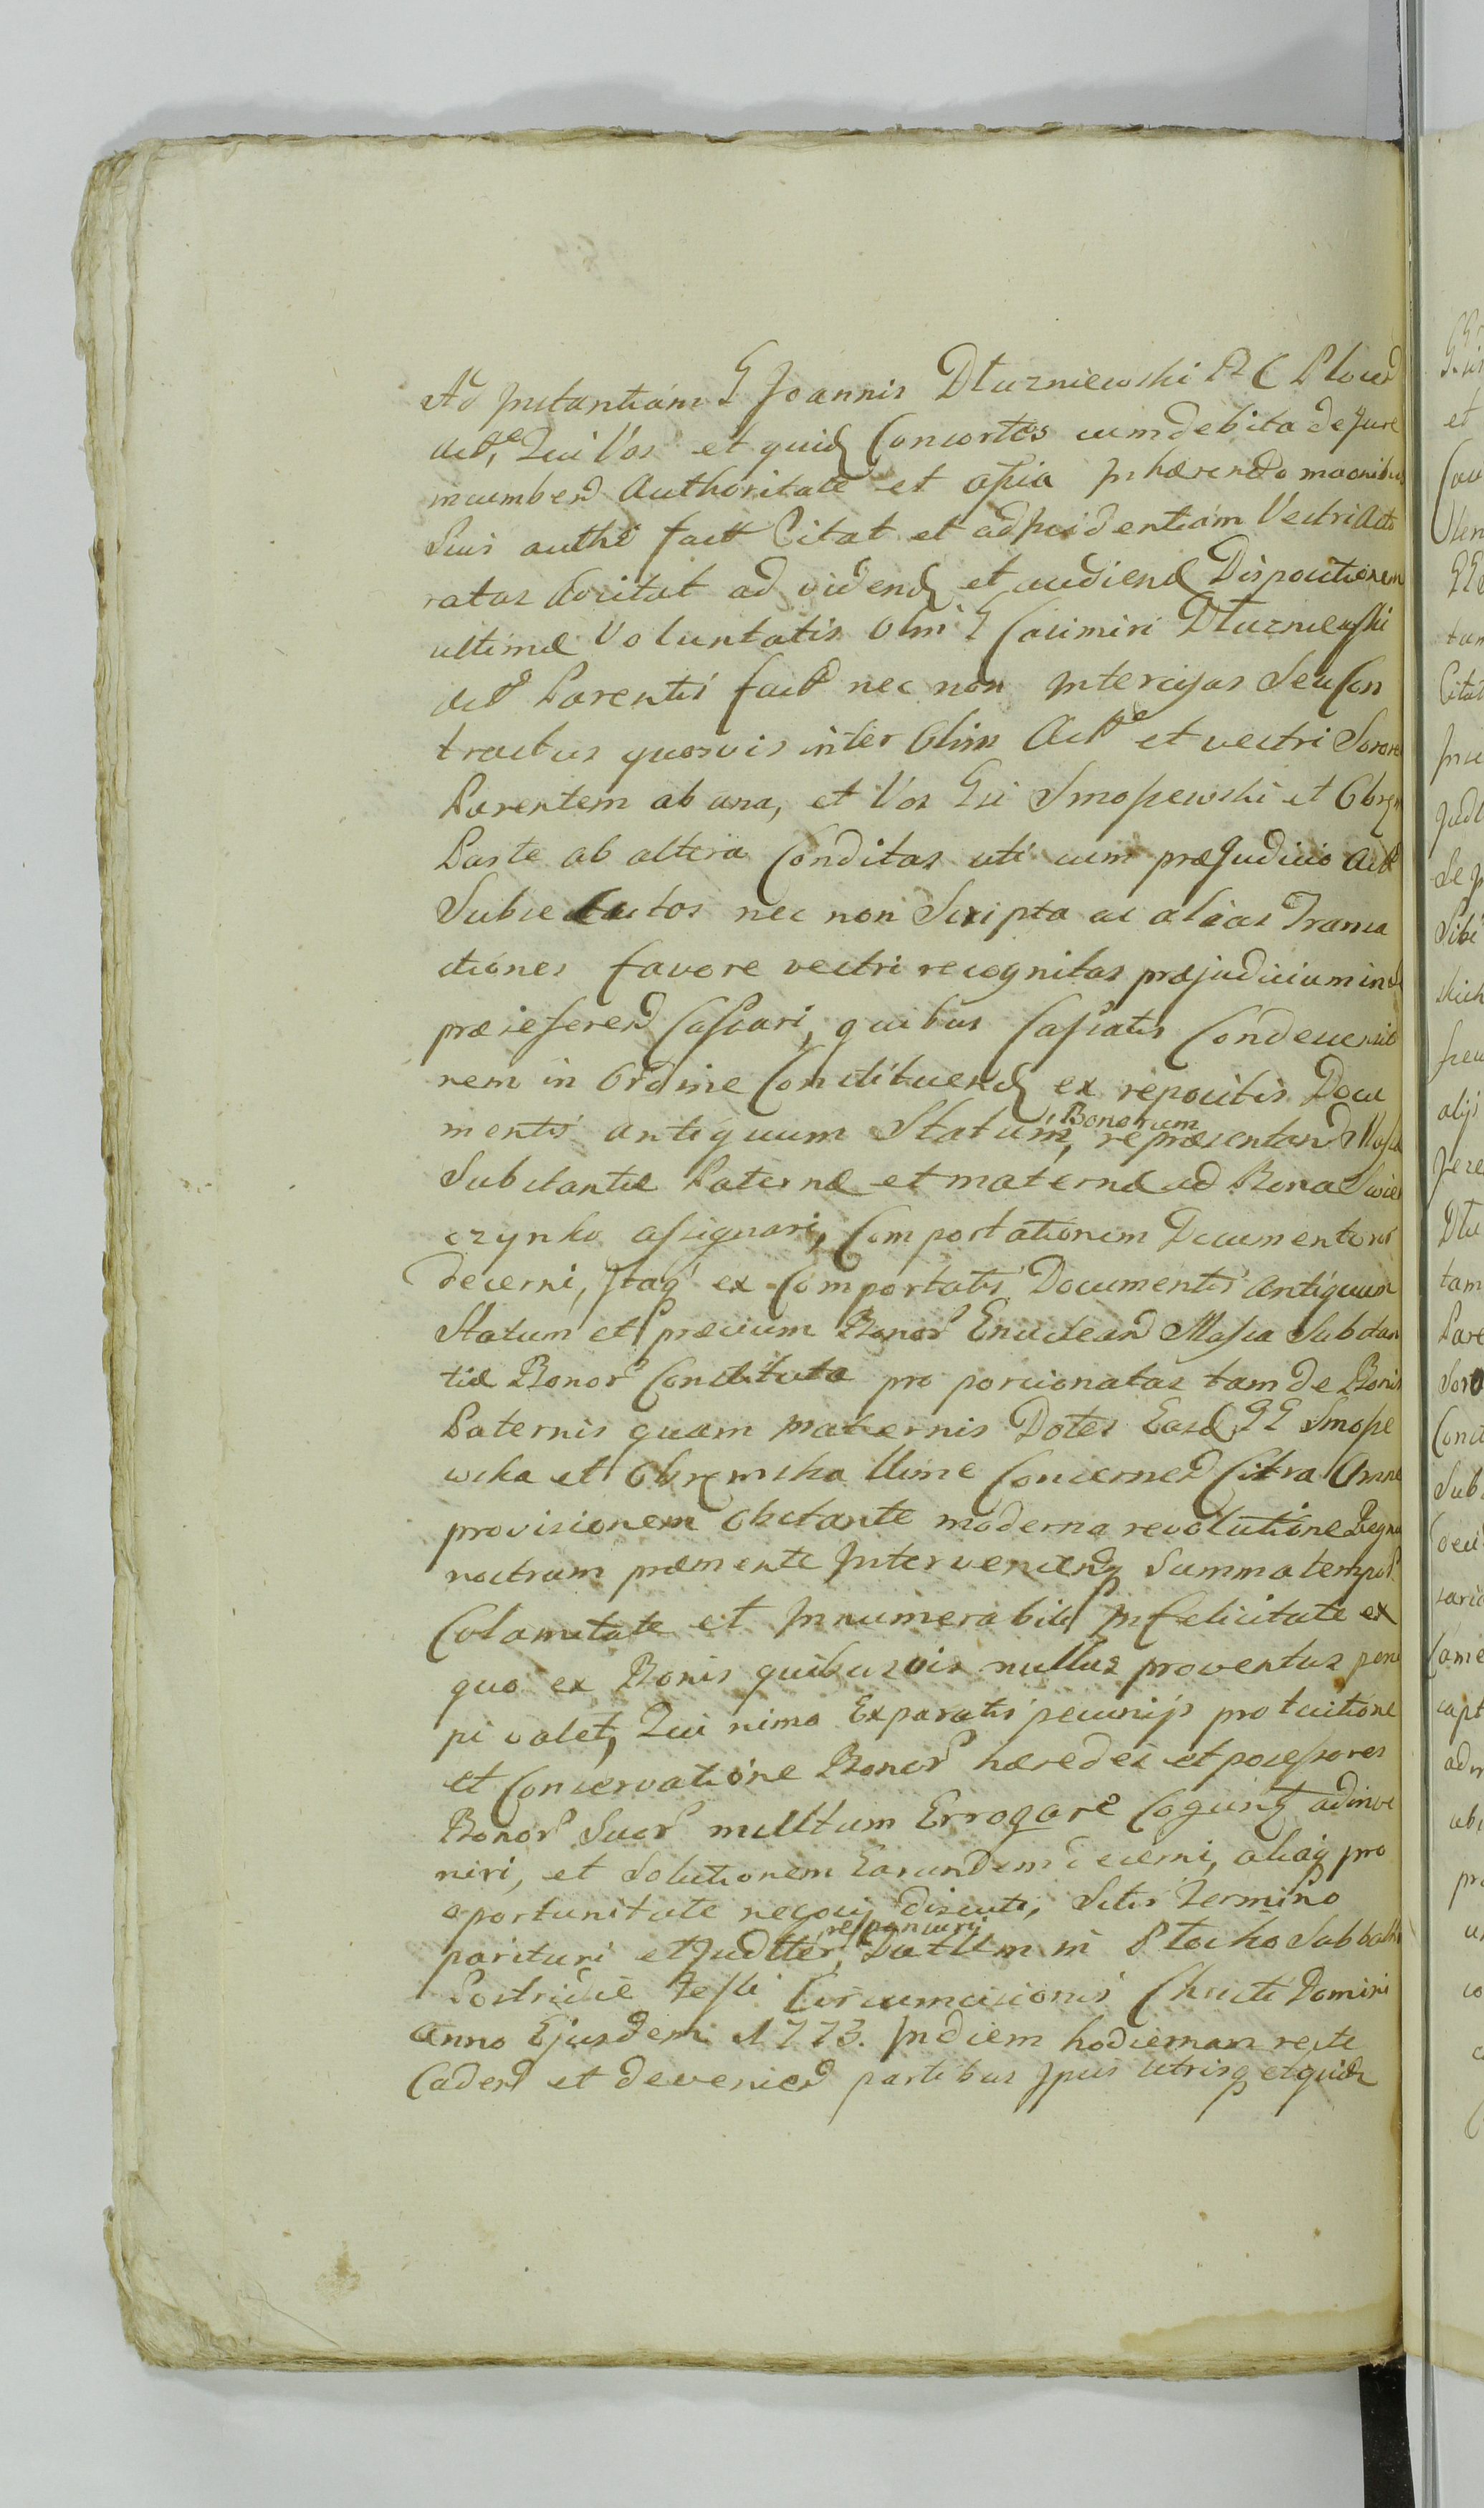 Ad Instantiam G Joannis Dłuzniewski R C Plocen
Act, Qui Vos et quidq Consortes cum debita de Jure
incumben Authoritate et assia Inhærendo maoribus
Suis authe fact Citat et ad Incidentiam Vestri Acto
ratas Avocitat ad videndq et audiend Dispositionem
ultimæ Voluntatis Olim G Casimiri Dłuzniewski
Act Parentis fact nec non Intercisas Seu Con
tractus quosvis inter Olim Act et vestri Soror
Parentem ab una, et Vos GG Smoszewski et
Parte ab altera Conditas uti cum præJudicio Act
nec non Scripta ac alias Transa
ctiones favore vestri recognitas præjudicium ind
præseferend Cassari, quibus Cassatis Condescensio
nem in Ordine Constituendq ex repositis Docu
mentis antiquum Statum, Bonorum repræsentand Massa
Substantiæ Paternæ et maternæ ad Bona Swies
czynko assignari, Comportationem Documentor
decerni, Itaq ex Comportatis Documentis antiquum
Statum et Præcium Bonor Enucleand Massa Substan
tiæ Bonor Constituta pro porcionatas tam de Bonis
Paternis quam maternis Dotes Easd GG Smosze
wska et Obremska llime Concernen Citra Omne
provisionem Obstante moderna revolutione Regnu
nostrum præmente Interveniendq Summa tempor
Calamitate et Innumerabili Infelicitate ex
quo ex Bonis quibusvis nullus proventus perci
pi valet, Qui nimo Exparatis pecunijs pro tuitione
et Conservatione Bonor hæredes et possessores
Bonor Suor multum Errogare Cogunt adinve
niri, et Solutionem Earundem decerni, aliaq pro
oportunitate negocij discuti, Sitis Termino
parituri et Judtter, responsuri Dattum in Płocko Sabbatho
Postridie Festi Circumcisionis Christi Domini
Anno Ejusdem 1773. In diem hodiernam recte
Caden et devenien partibus Ipsis utrisq et quidq